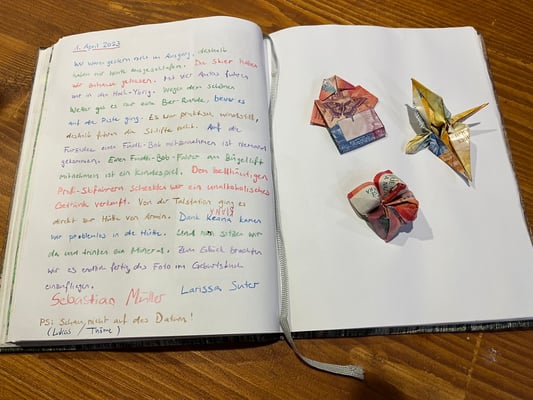 1. April 2023
Wir waren gestern nicht im Ausgang, deshalb
haben wir heute ausgeschlafen. Da Skier haben
wir zuhause gelassen. Mit vier Autos fuhren
wir in den Hoch-Ybrig. Wegen dem schönen
Wetter gab es nur eine Bier-Runde, bevor es
auf die Piste ging. Es war praktisch windstill,
deshalb fuhren die Skilifte nicht. Auf die
Furzidee einen Füdli-Bob mitzunehmen ist niemand
gekommen. Einen Füdli-Bob-Fahrer am Bügellift
mitnehmen ist ein Kinderspiel. Den
Profi-Skifahrern Schenkten wir ein unalkoholisches
Getränk verkauft. Von der Talstation ging es
direkt zur Hütte von Armin. Dank Keana kamen
wir problemlos in die Hütte. Und nun sitzen wir
da und trinken ein Mineral. Zum Glück brachten
wir es endlich fertig das Foto im Geburtsbuch
einzufliegen.
Sebastian Müller Larissa Suter
PS: Schau nicht auf das Datum!